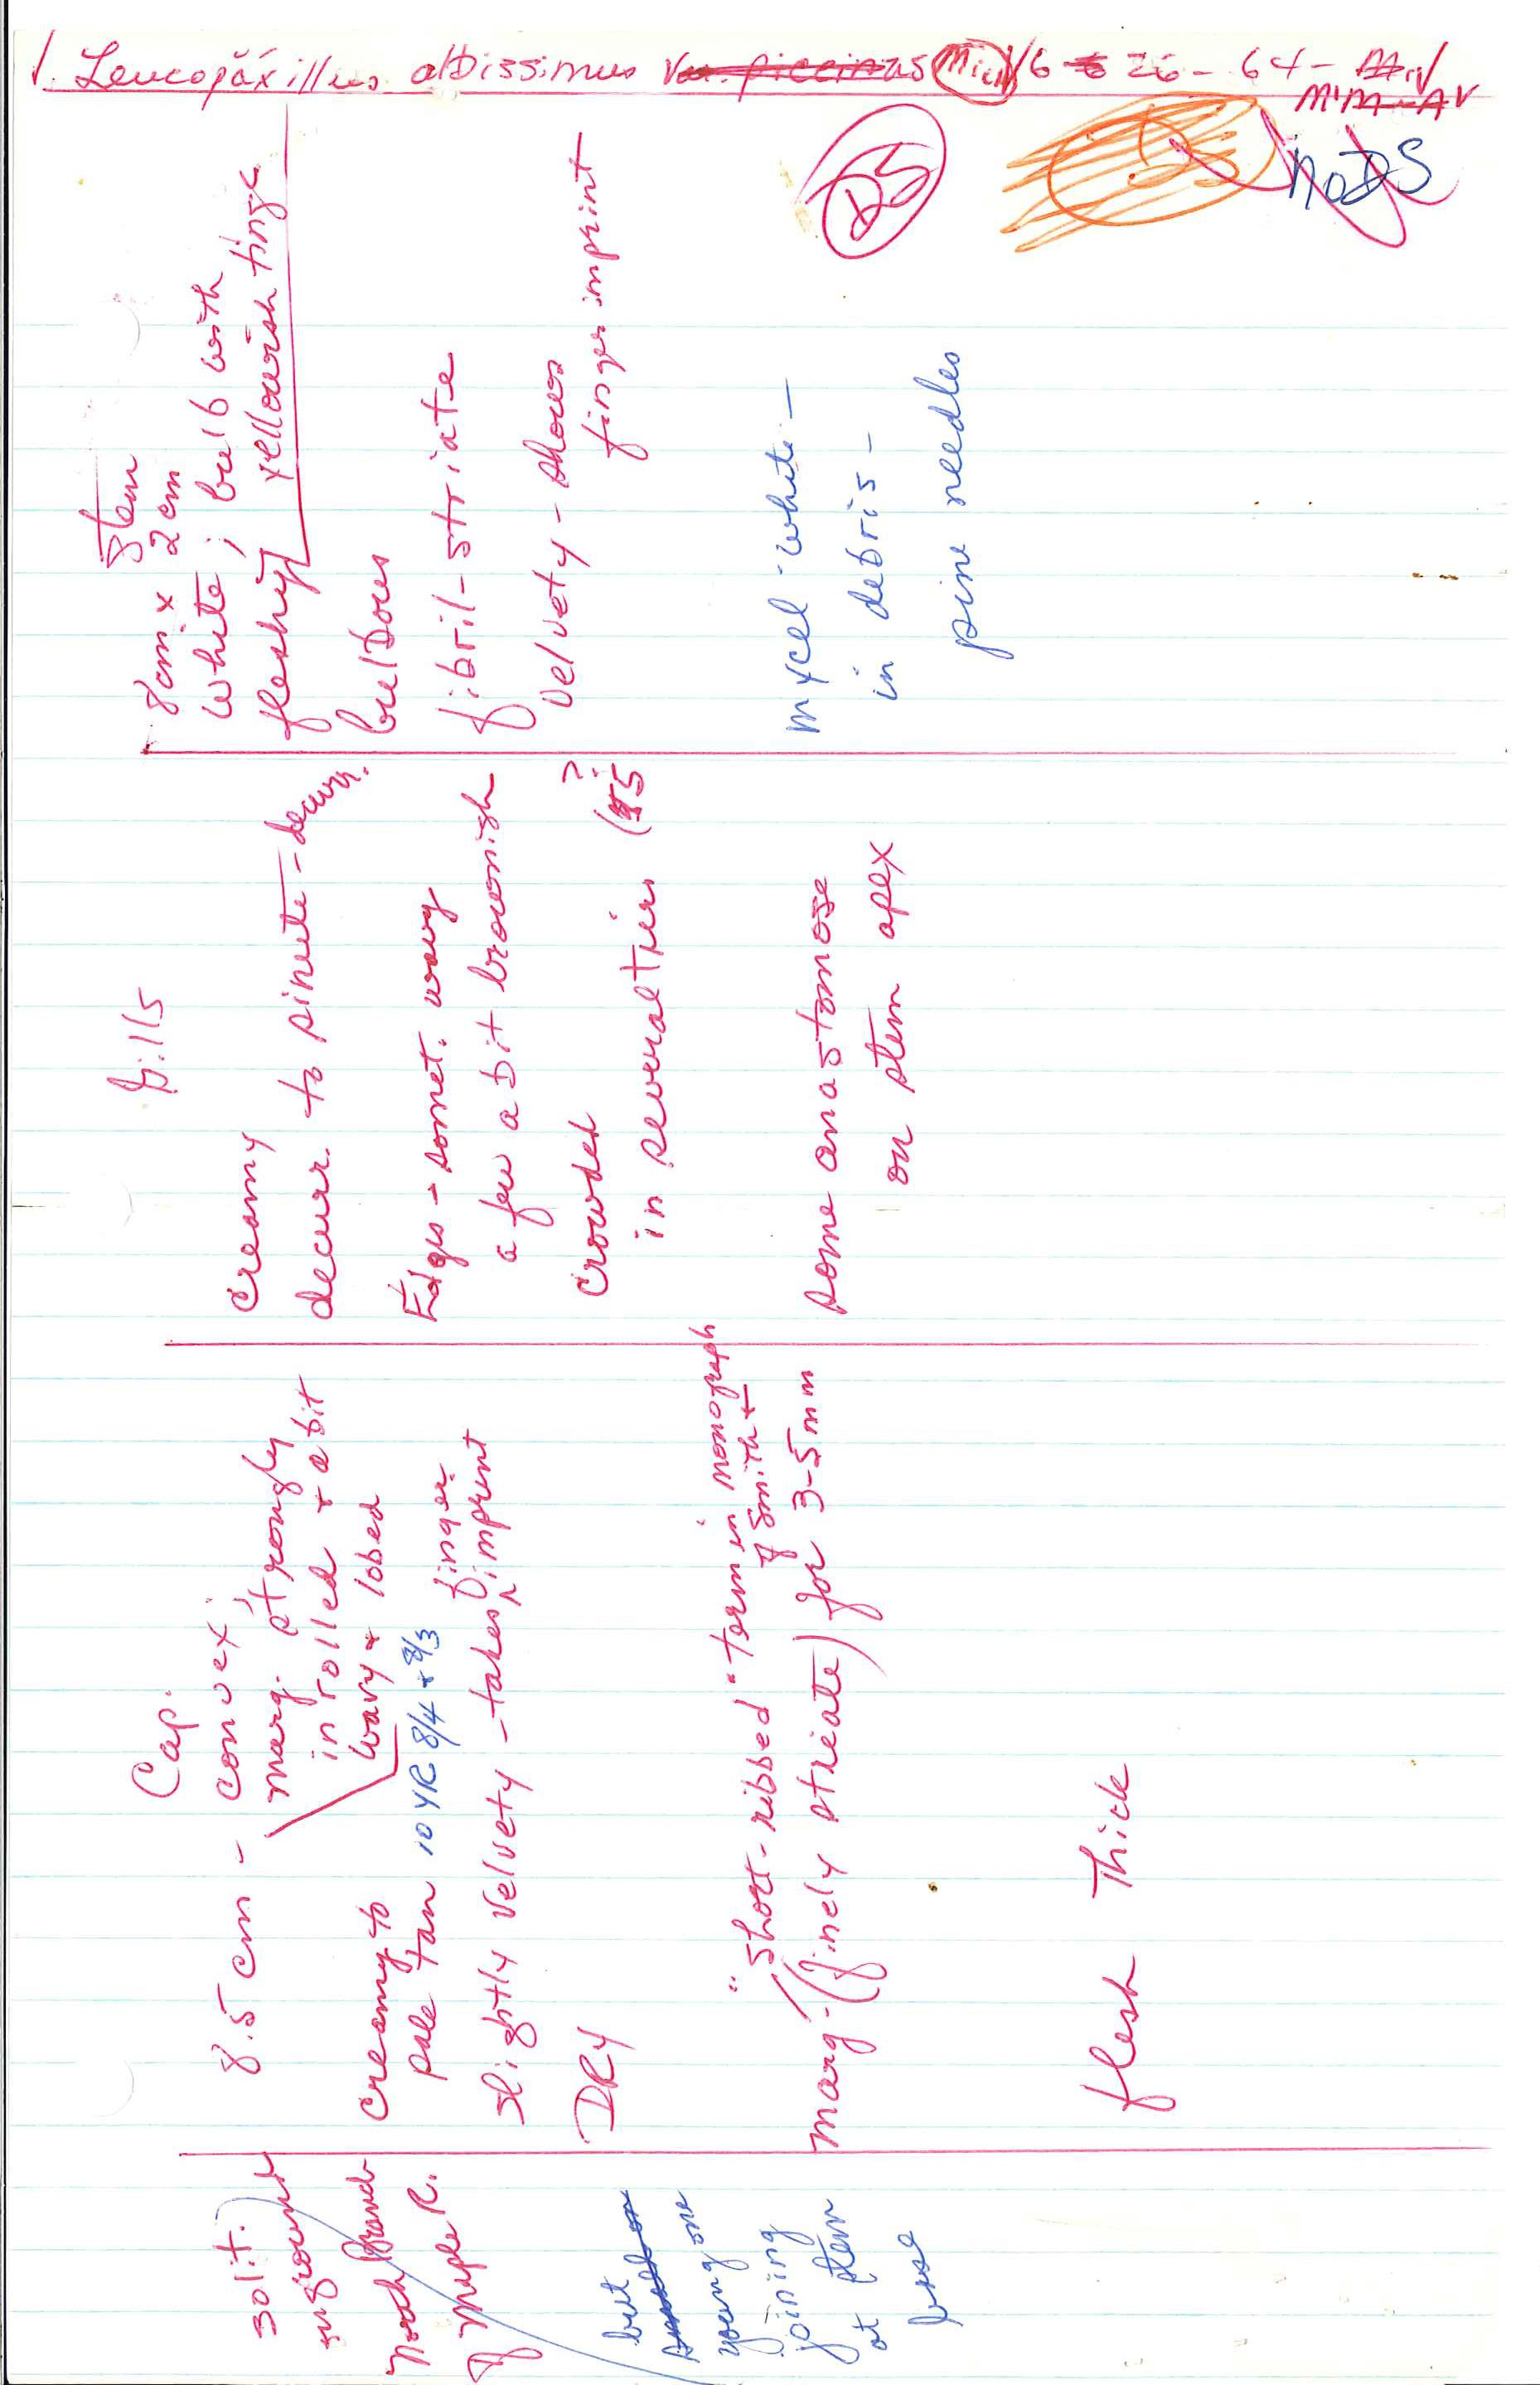 1. Leucopaxillus albissimus Var. piceinus Mich 6 26-64-
DS
no DS
solit.
on ground
North Branch
of Maple R.
but
young one
joining
at stem
base
Cap.
8.5 cm - convex;
marg. strongly
inrolled + a bit
wavy + lobed
creamy to
pale tan 10 YR 8/4 + 8/3
slightly velvety - takes finger imprint
DRY
"short-ribbed" term in monograph
of Smith +
marg - (finely striate) for 3-5 mm
flesh Thick
Gills
creamy
decurr. to sinuate-decurr.
Edges - somet. wavy
a few a bit brownish
crowded
in several tiers (5?
some anastomose
on stem apex
Stem
8cm x 2cm
white; bulb with
yellowish tinge
fleshy
bulbous
fibril-striate
velvety - shows
finger imprint
mycel white -
in debris -
pine needles